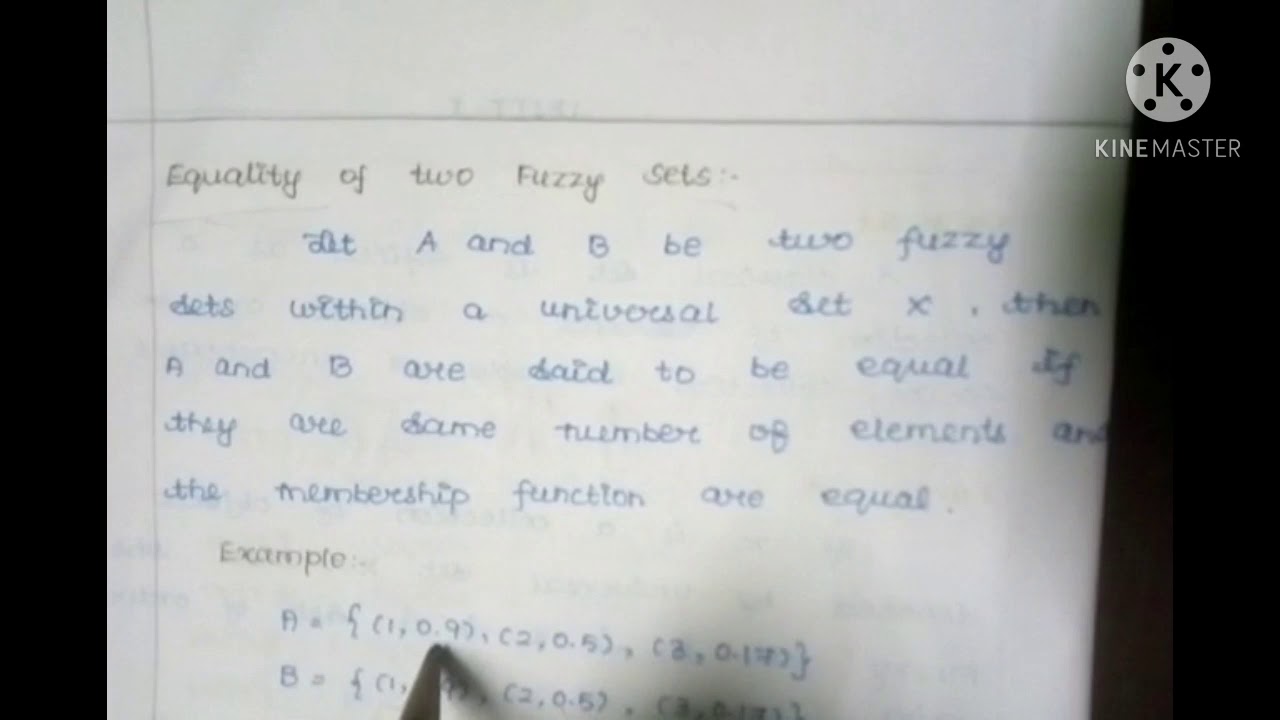 K
KINEMASTER
Equality of two Fuzzy sets:-
Let A and B be two fuzzy
sets within a universal set x, then
A and B are said to be equal if
they are same number of elements and
the membership function are equal.
Example:-
A = { (1, 0.9), (2, 0.5), (3, 0.17)}
B = { (1, ), (2, 0.5), (3, 0.17)}